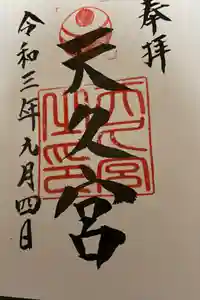 奉拝
天久宮
令和三年九月四日